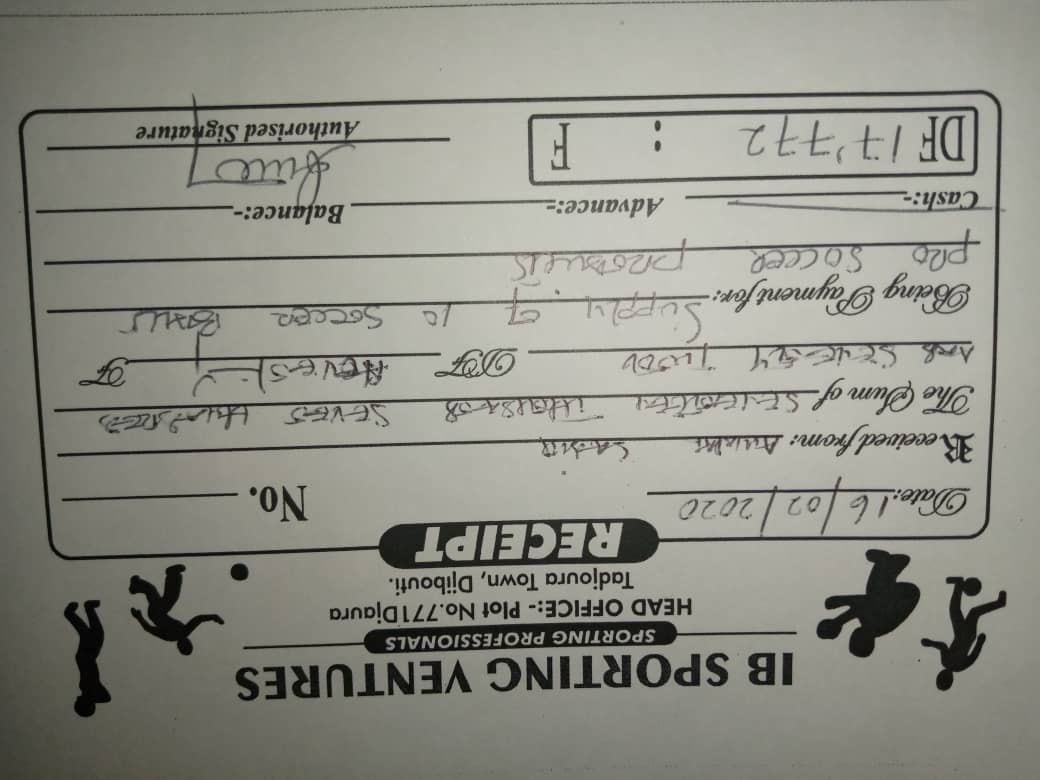 IB SPORTING VENTURES
SPORTING PROFESSIONALS
HEAD OFFICE:- Plot No.771Djaura
Tadjoura Town, Djibouti.
RECEIPT
Date: 16/02/2020 No.
Received from:
The Sum of SEVENTEEN THOUSAND SEVEN HUNDRED
AND SEVENTY TWO DF F
Being Payment for: SUPPLY OF 10 SOCCER BALLS
PRO SOCCER PRODUCTS
Cash:- Advance:- Balance:-
DF 17'772 : F
Authorised Signature